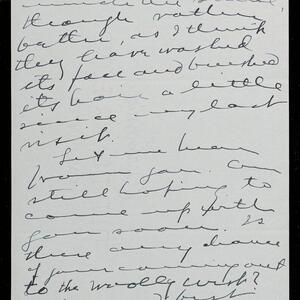 though rather
better, as I think
they have washed
its face and brushed
its hair a little
since my last
visit.
Let me hear
from you. Am
still hoping to
come up with
you soon. Is
there any chance
of your coming out
to the woolly west?